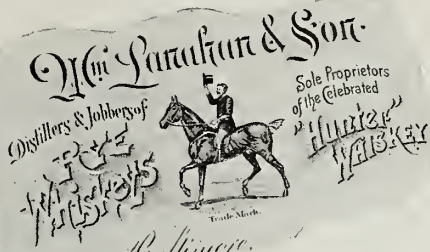 Wm Lanahan & Son.
Distillers & Jobbers of
RYE
WHISKEYS
Sole Proprietors
of the Celebrated
"Hunter"
WHISKEY
Trade Mark.